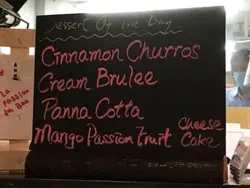 Dessert Of The Day
Cinnamon Churros
Cream Brulee
Panna Cotta
Mango Passion Fruit Cheese Cake
LA
PASSION